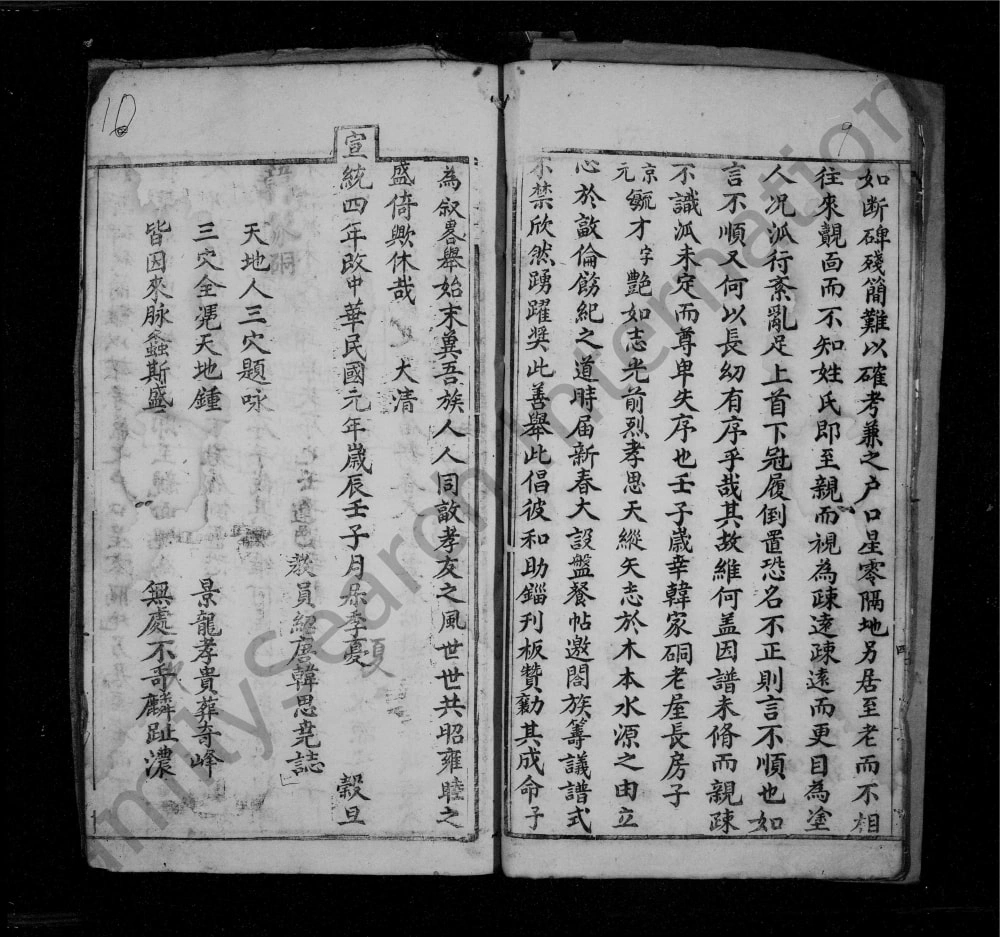 9
如斷碑殘簡難以確考兼之户口星零隔地另居至老而不相
往來覿面而不知姓氏即至親而視為疎逺疎逺而更目為塗
人况泒行紊亂足上首下冠履倒置恐名不正則言不順也如
言不順又何以長幼有序乎哉其故維何盖因譜未脩而親疎
不識泒未定而尊卑失序也壬子歲幸韓家硐老屋長房子
京元毓才字艷如志光前烈孝思天縱矢志於木本水源之由立
心於敵倫飭紀之道時届新春大設盤餐帖邀閤族籌議譜式
不禁欣然踴躍奖此善舉此倡彼和助錙刋板贊勷其成命子
10
為叙畧舉始末冀吾族人人同敵孝友之風世世共昭雍睦之
盛倚歟休哉 大清
宣統四年改中華民國元年歲辰壬子月 季夏 穀旦
教員紹唐韓思尭誌
天地人三穴題咏
三穴全凴天地鍾 景龍孝貴葬奇峰
皆因來脉螽斯盛 無處不奇麟趾濃
FamilySearch International